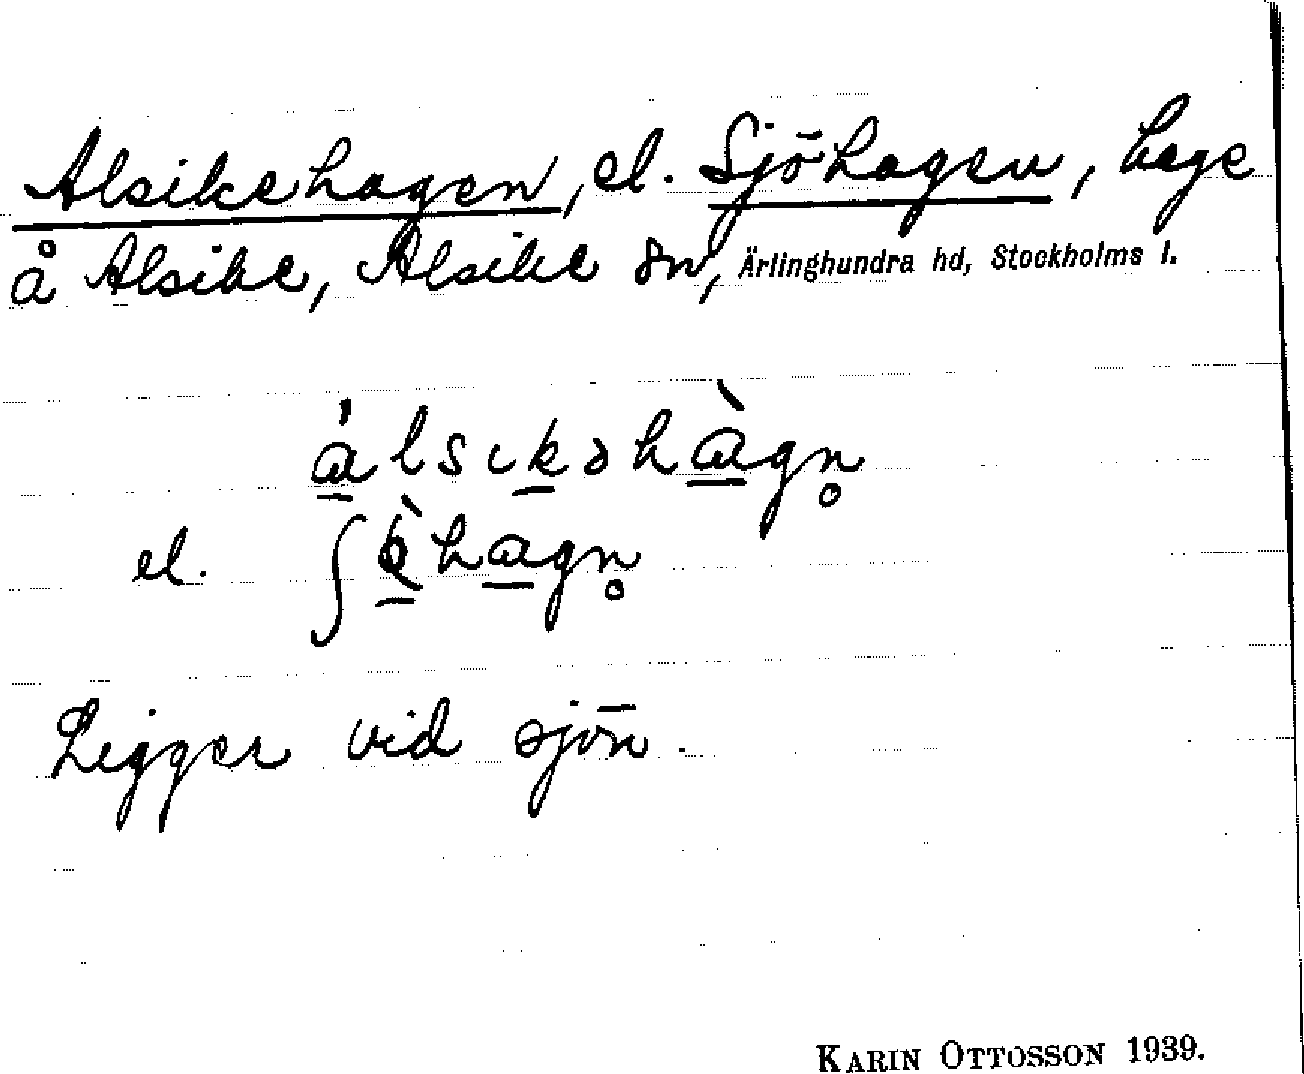 Alsikehagen, el. Sjöhagen, hage
å Alsike, Alsike sn, Ärlinghundra hd, Stockholms l.
á̱lsıḵəhà̱gn̥
el. ʃɵ̱̀ha̱gn̥
Ligger vid sjön.
KARIN OTTOSSON 1939.